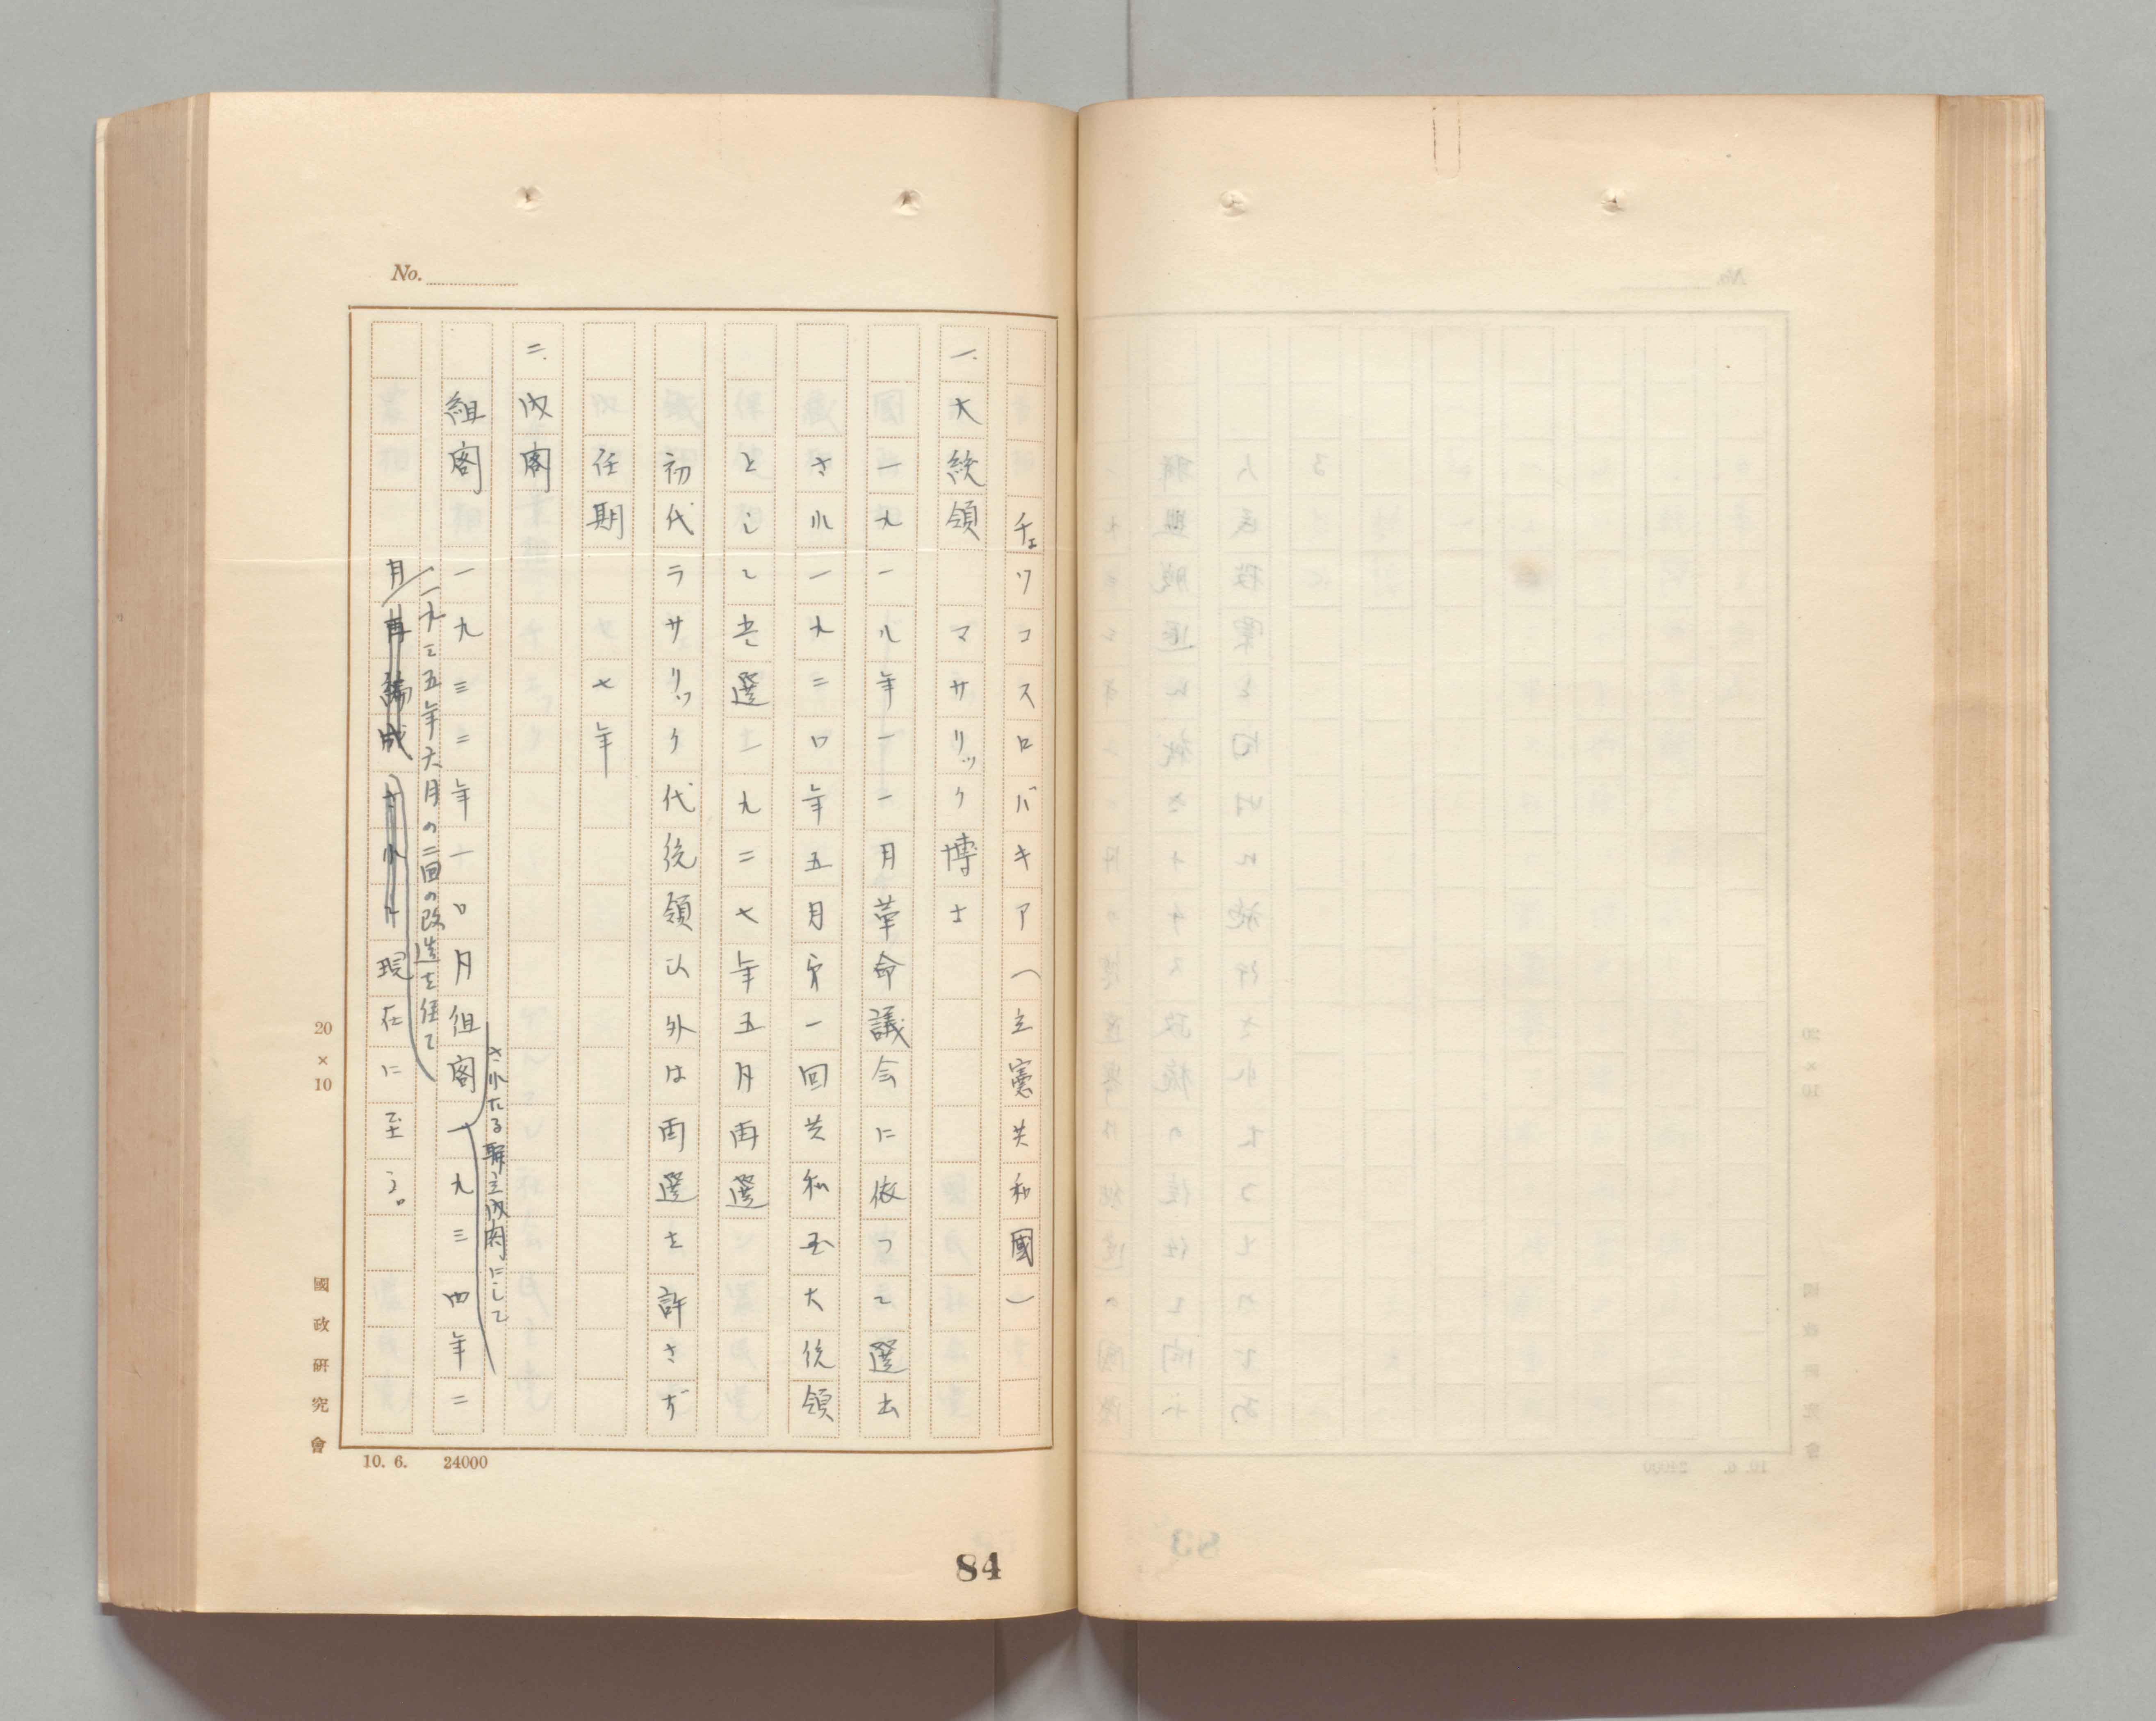 No.
チェツコスロバキア（立憲共和國）
一.大統領　マサリック博士
一九一八年一一月革命議会に依つて選出
され一九二〇年五月第一回共和国大統領
として当選一九二七年五月再選
初代ラサリック代統領以外は再選を許さず
任期　七年
二.内閣
組閣　一九三二年一〇月組閣
されたる聯立内閣にして
一九三四年二
月
一九三五年六月の二回の改造を経て
再編成されて
現在に至る。
20×10
國政研究會
10. 6.　24000
84